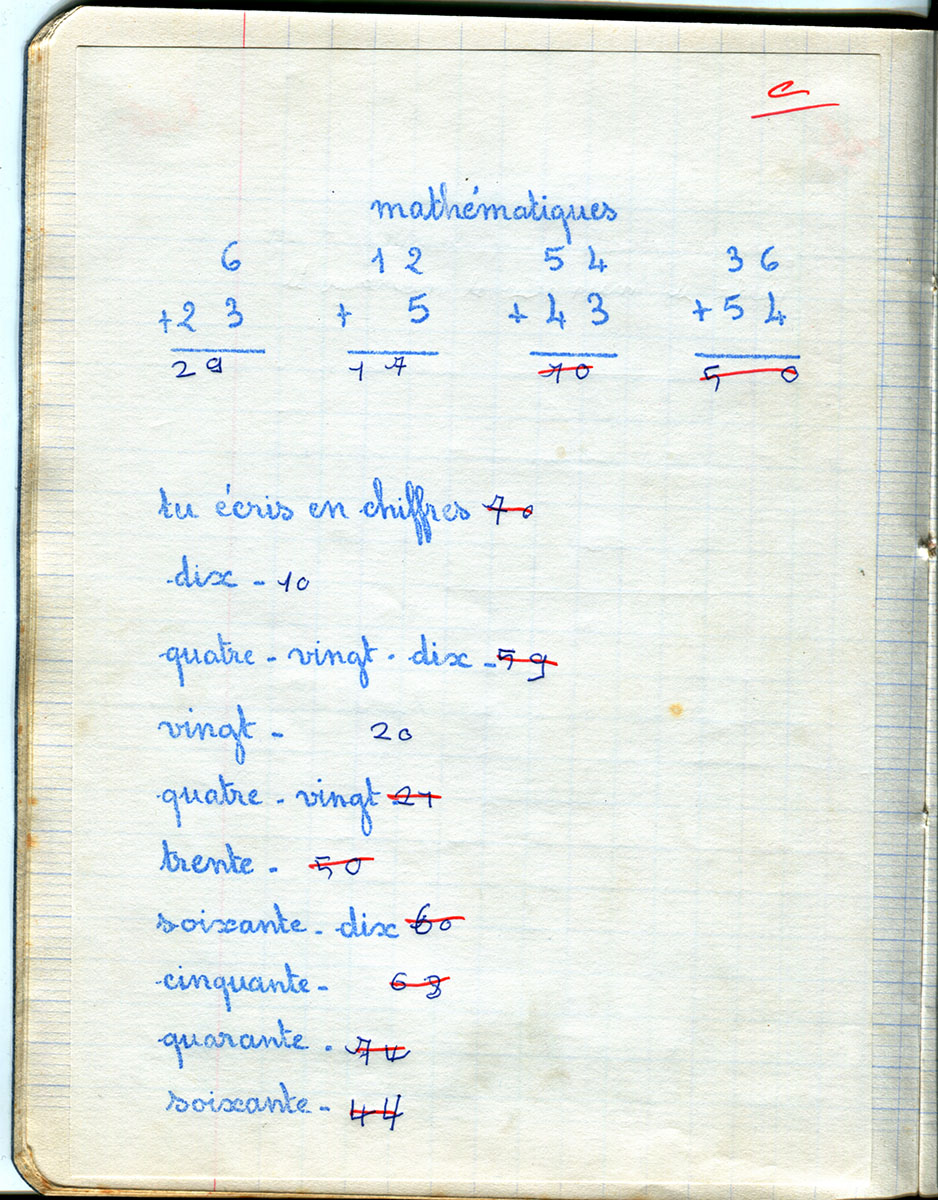 C
mathématiques
6 12 54 36
+23 + 5 +43 +54
29 17 10 5 0
tu écris en chiffres 70
dix - 10
quatre - vingt - dix - 59
vingt - 20
quatre - vingt - 21
trente - 50
soixante - dix 60
cinquante - 63
quarante - 74
soixante - 44